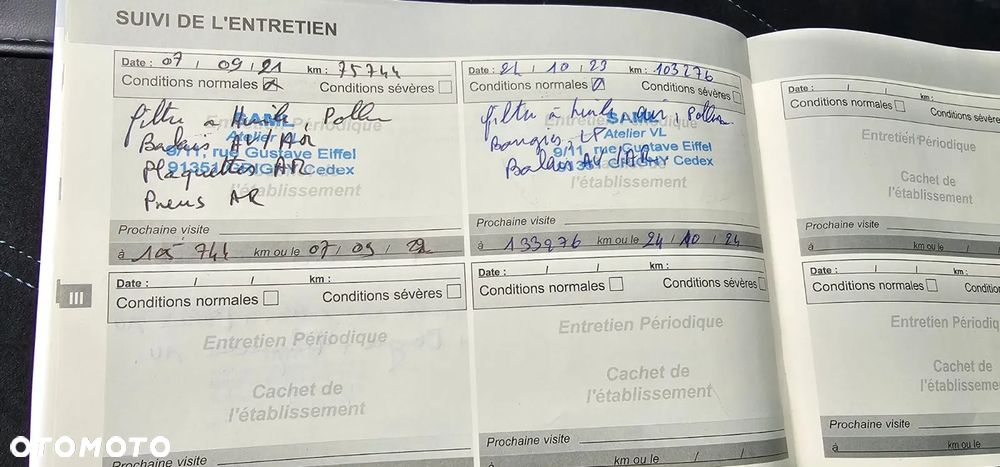 SUIVI DE L'ENTRETIEN
Date : 07 / 09 / 21 km : 75744
Conditions normales Conditions sévères
filtre à Huile, Pollen
Balais AV/AR
Plaquettes AR
Pneus AR
Entretien Périodique
SAML
Atelier VL
9/11, rue Gustave Eiffel
91351 GRIGNY Cedex
l'établissement
Prochaine visite
à 105 744 km ou le 07 / 09 / 22
Date : 24 / 10 / 23 km : 103276
Conditions normales Conditions sévères
filtre à huile, Pollen
Bougies, LP
Balais AV/AR
Entretien Périodique
SAML
Atelier VL
9/11, rue Gustave Eiffel
91351 GRIGNY Cedex
l'établissement
Prochaine visite
à 133276 km ou le 24 / 10 / 24
Date : / / km :
Conditions normales
Entretien Périodique
Cachet de
l'établissement
Prochaine visite
à km ou le /
III
Date : / / km :
Conditions normales Conditions sévères
Entretien Périodique
Cachet de
l'établissement
Prochaine visite
Date : / / km :
Conditions normales Conditions sévères
Entretien Périodique
Cachet de
l'établissement
Prochaine visite
à km ou le / /
Date : / / km :
Conditions normales Condition
Entretien Périodiq
Cachet de
l'établisseme
Prochaine visite
à km ou le
OTOMOTO